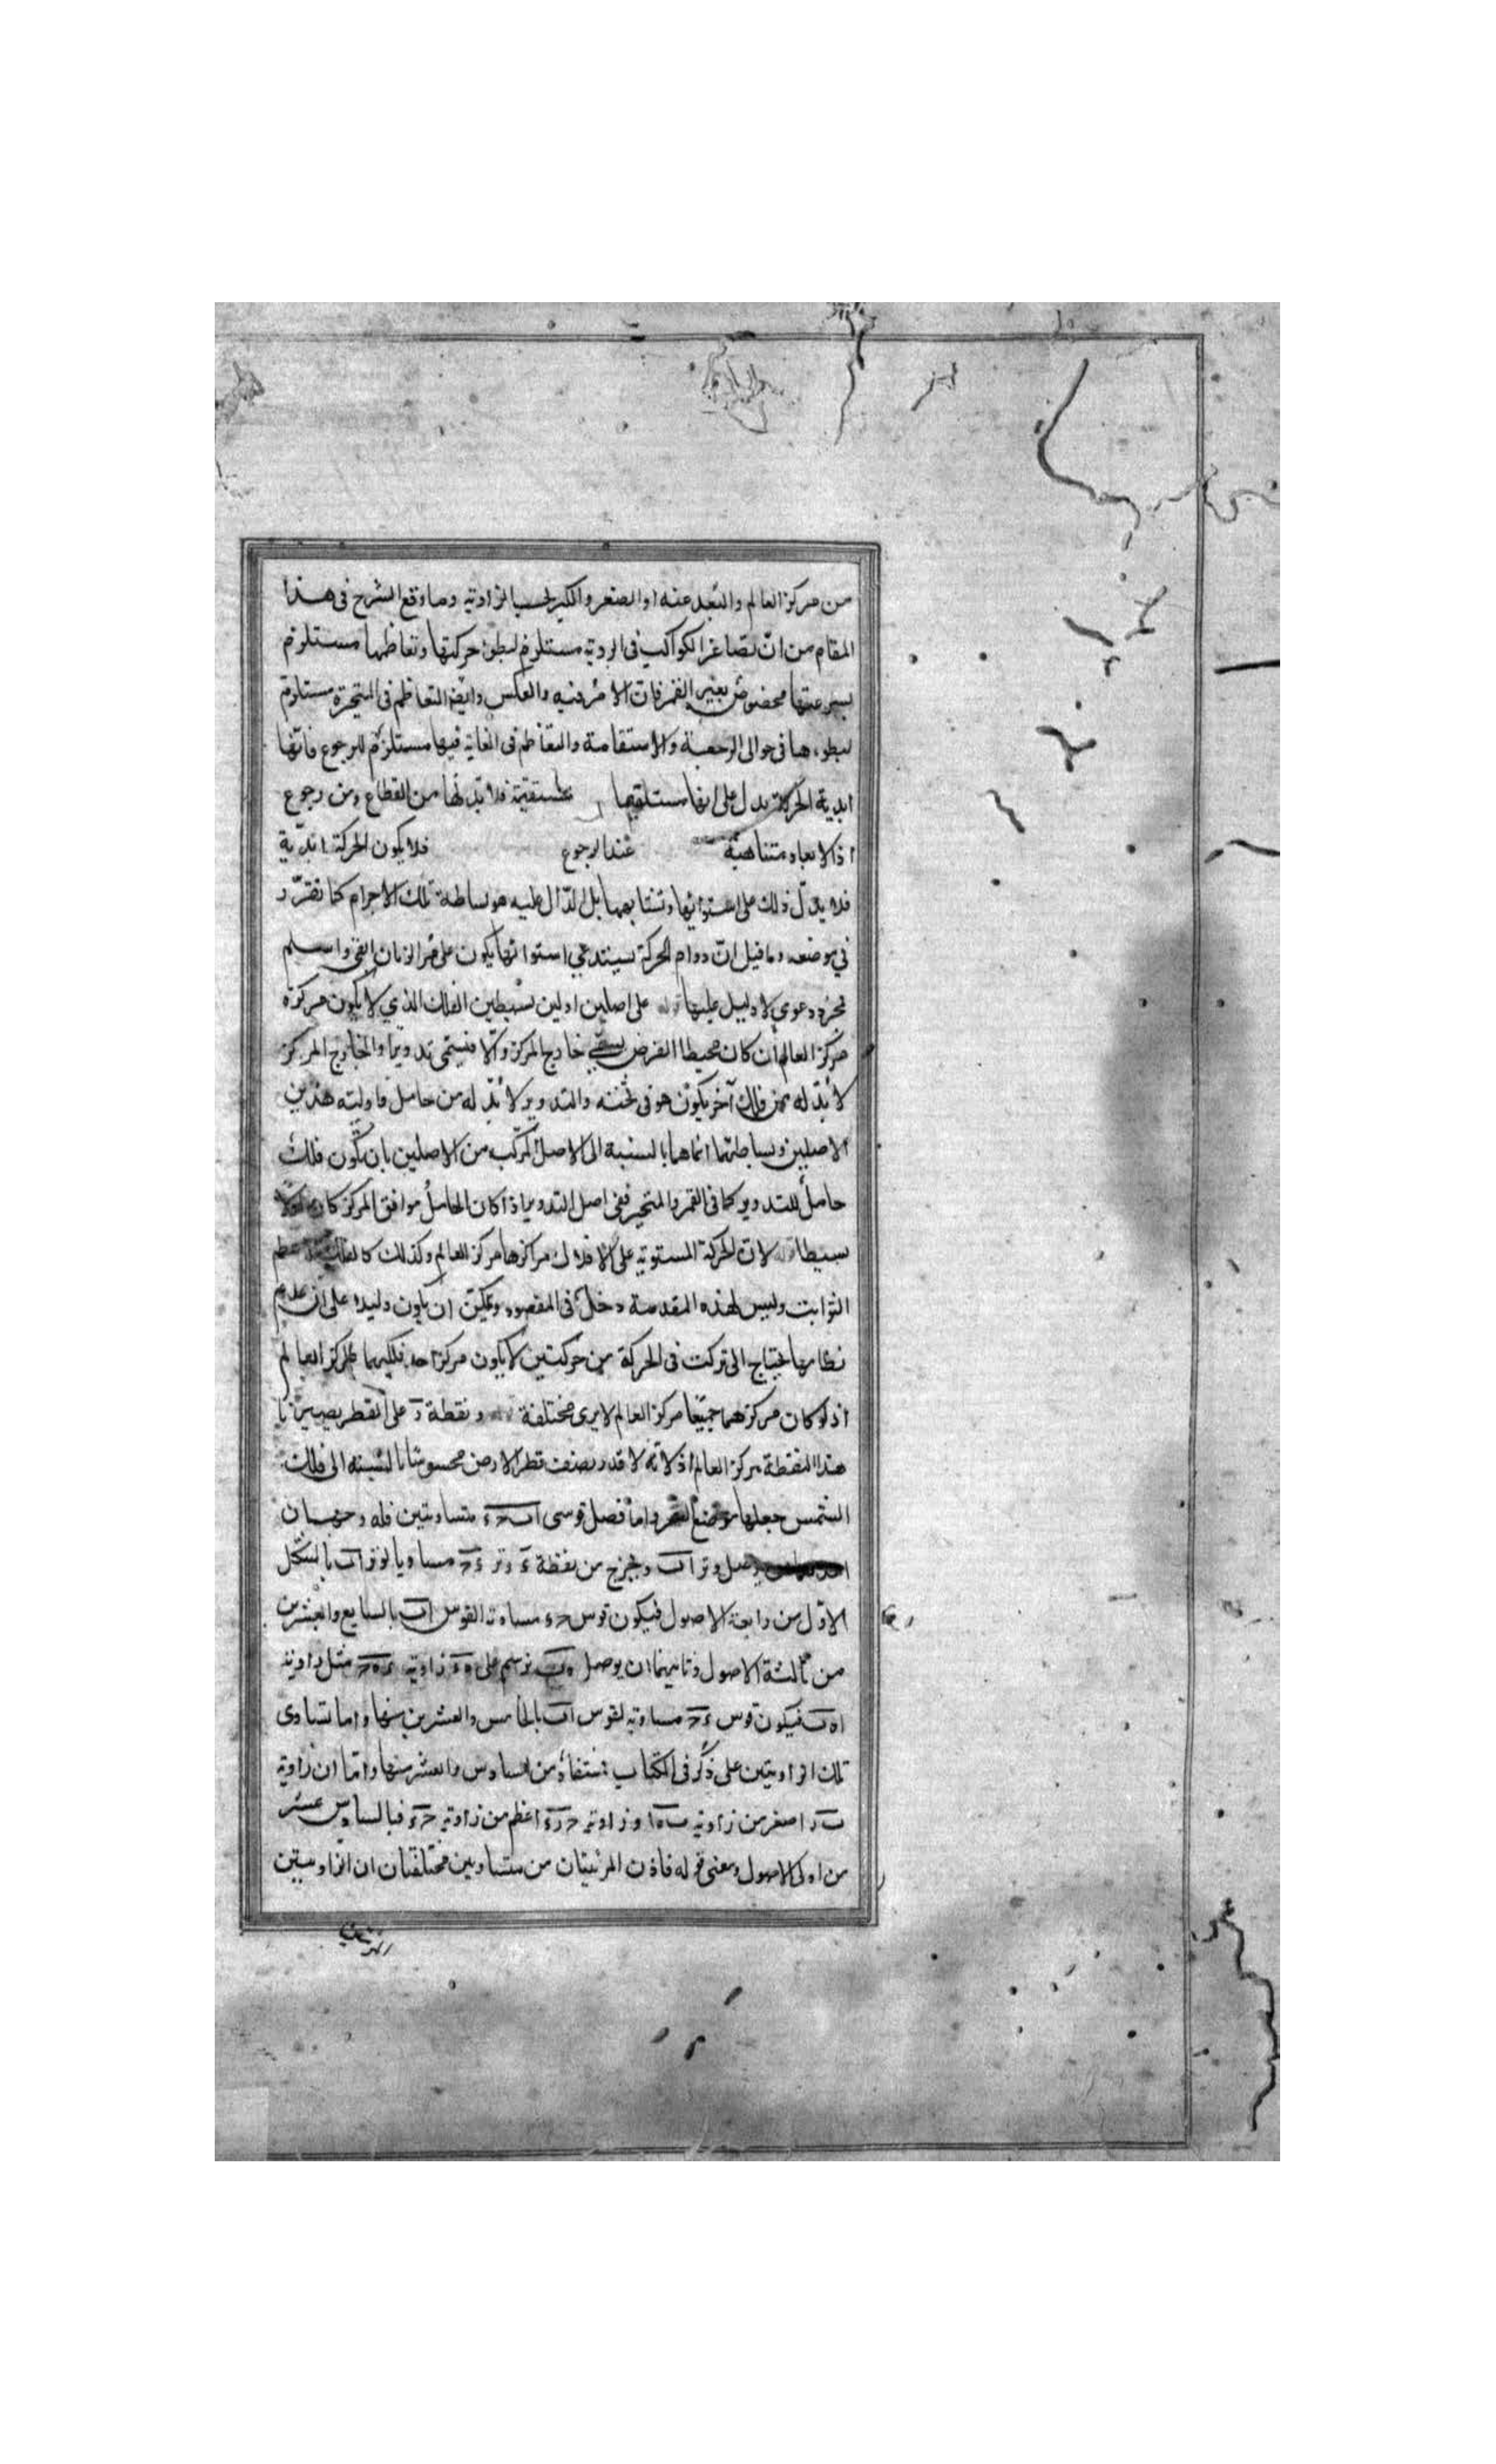 من مركز العالم والبعد عنه او الصغر والكبر بحسب الزاوية وما وقع الشرح فى هذا
المقام من ان تصاغر الكواكب فى الروية مستلزم لبطؤ حركتها وتعاظمها مستلزم
لسرعتها مخصوص بغير القمر فان الامر فيه والعكس وايضا التعاظم فى المتحيرة مستلزم
لبطوءها فى حوالى الرجعة والاستقامة والتعاظم فى الغاية فيها مستلزم للرجوع فانها
ابدية الحركة يدل على انها مستقيمة فلا بد لها من انقطاع ومن رجوع
اذ الابعاد متناهية عند الرجوع فلا يكون الحركة ابدية
فلا يدل ذلك على استوائها وتشابهها بل الدال عليه هو بساطة تلك الاجرام كما تقرر
في موضعه وما قيل ان دوام الحركة يستدعي استوائها يكون على مر الزمان
مجرد دعوي لا دليل عليها قوله على اصلين اولين بسيطين الفلك الذي لا يكون مركزه
مركز العالم ان كان محيطا الفرض يسمى خارج المركز والا فيسمى تدويرا والخارج المركز
لا بد له من فلك آخر يكون هو فى ثخنه والتدوير لا بد له من حامل فاولية هذين
الاصلين وبساطتهما انما هما بالنسبة الى الاصل المركب من الاصلين بان يكون فلك
حامل للتدوير كما فى القمر والمتحير ففى اصل التدوير اذا كان الحامل موافق المركز كان
بسيطا قوله لان الحركة المستوية على الافلاك مراكزها مركز العالم وكذلك كالفلك
الثوابت وليس لهذه المقدمة دخل فى المقصود ويمكن ان يكون دليلا على ان عدم
نظامها يحتاج الى تركت فى الحركة من حركتين لا يكون مركز احد فلكيهما مركز العالم
اذ لو كان مركزهما جميعا مركز العالم لا يرى مختلفة قوله ونقطة د على القطر
هذا النقطة مركز العالم اذ لانه لا قدر بنصف قطر الارض محسوسا بالنسبة الى فلك
الشمس جعلها موضع البصر واما فصل قوسى اب حء متساويتين فله وجهان
احدهما ان يوصل وتر اب ويخرج من نقطة ء وتر ءح مساويا لوتر اب بالشكل
الاول من رابعة الاصول فيكون قوس حء مساوية لقوس اب بالسابع والعشرين
من ثالثة الاصول وثانيهما ان يوصل ه‍ب نرسم على ه‍ء زاوية ءه‍ح مثل زاوية
اه‍ب فيكون قوس ءح مساوية لقوس اب بالخامس والعشرين منها واما تساوى
تلك الزاويتين على ذكر فى الكتاب فمستفاد من السادس والعشر منها واما ان زاوية
ب‍ر‍ا اصغر من زاوية ب‍ه‍ا وزاوية ح‍ر‍ء اعظم من زاوية ح‍ه‍ء فبالسادس عشر
من اولى الاصول ومعنى قوله فاذن المرئيتان من متساويين مختلفتان ان الزاويتين